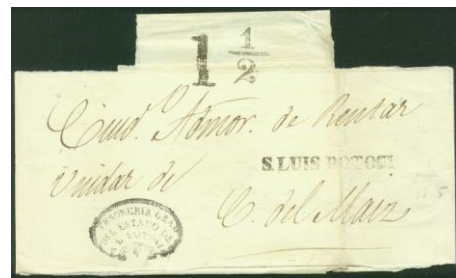 1 1/2
Ciud. Admor. de Rentas
Unidas de
S. LUIS POTOSI
C. del Maiz
TESORERIA GRAL
DEL ESTADO DE
S. L. POTOSI